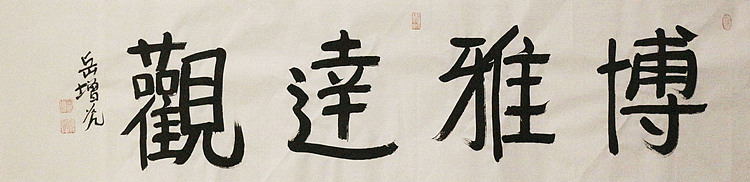 博雅達觀
岳增光